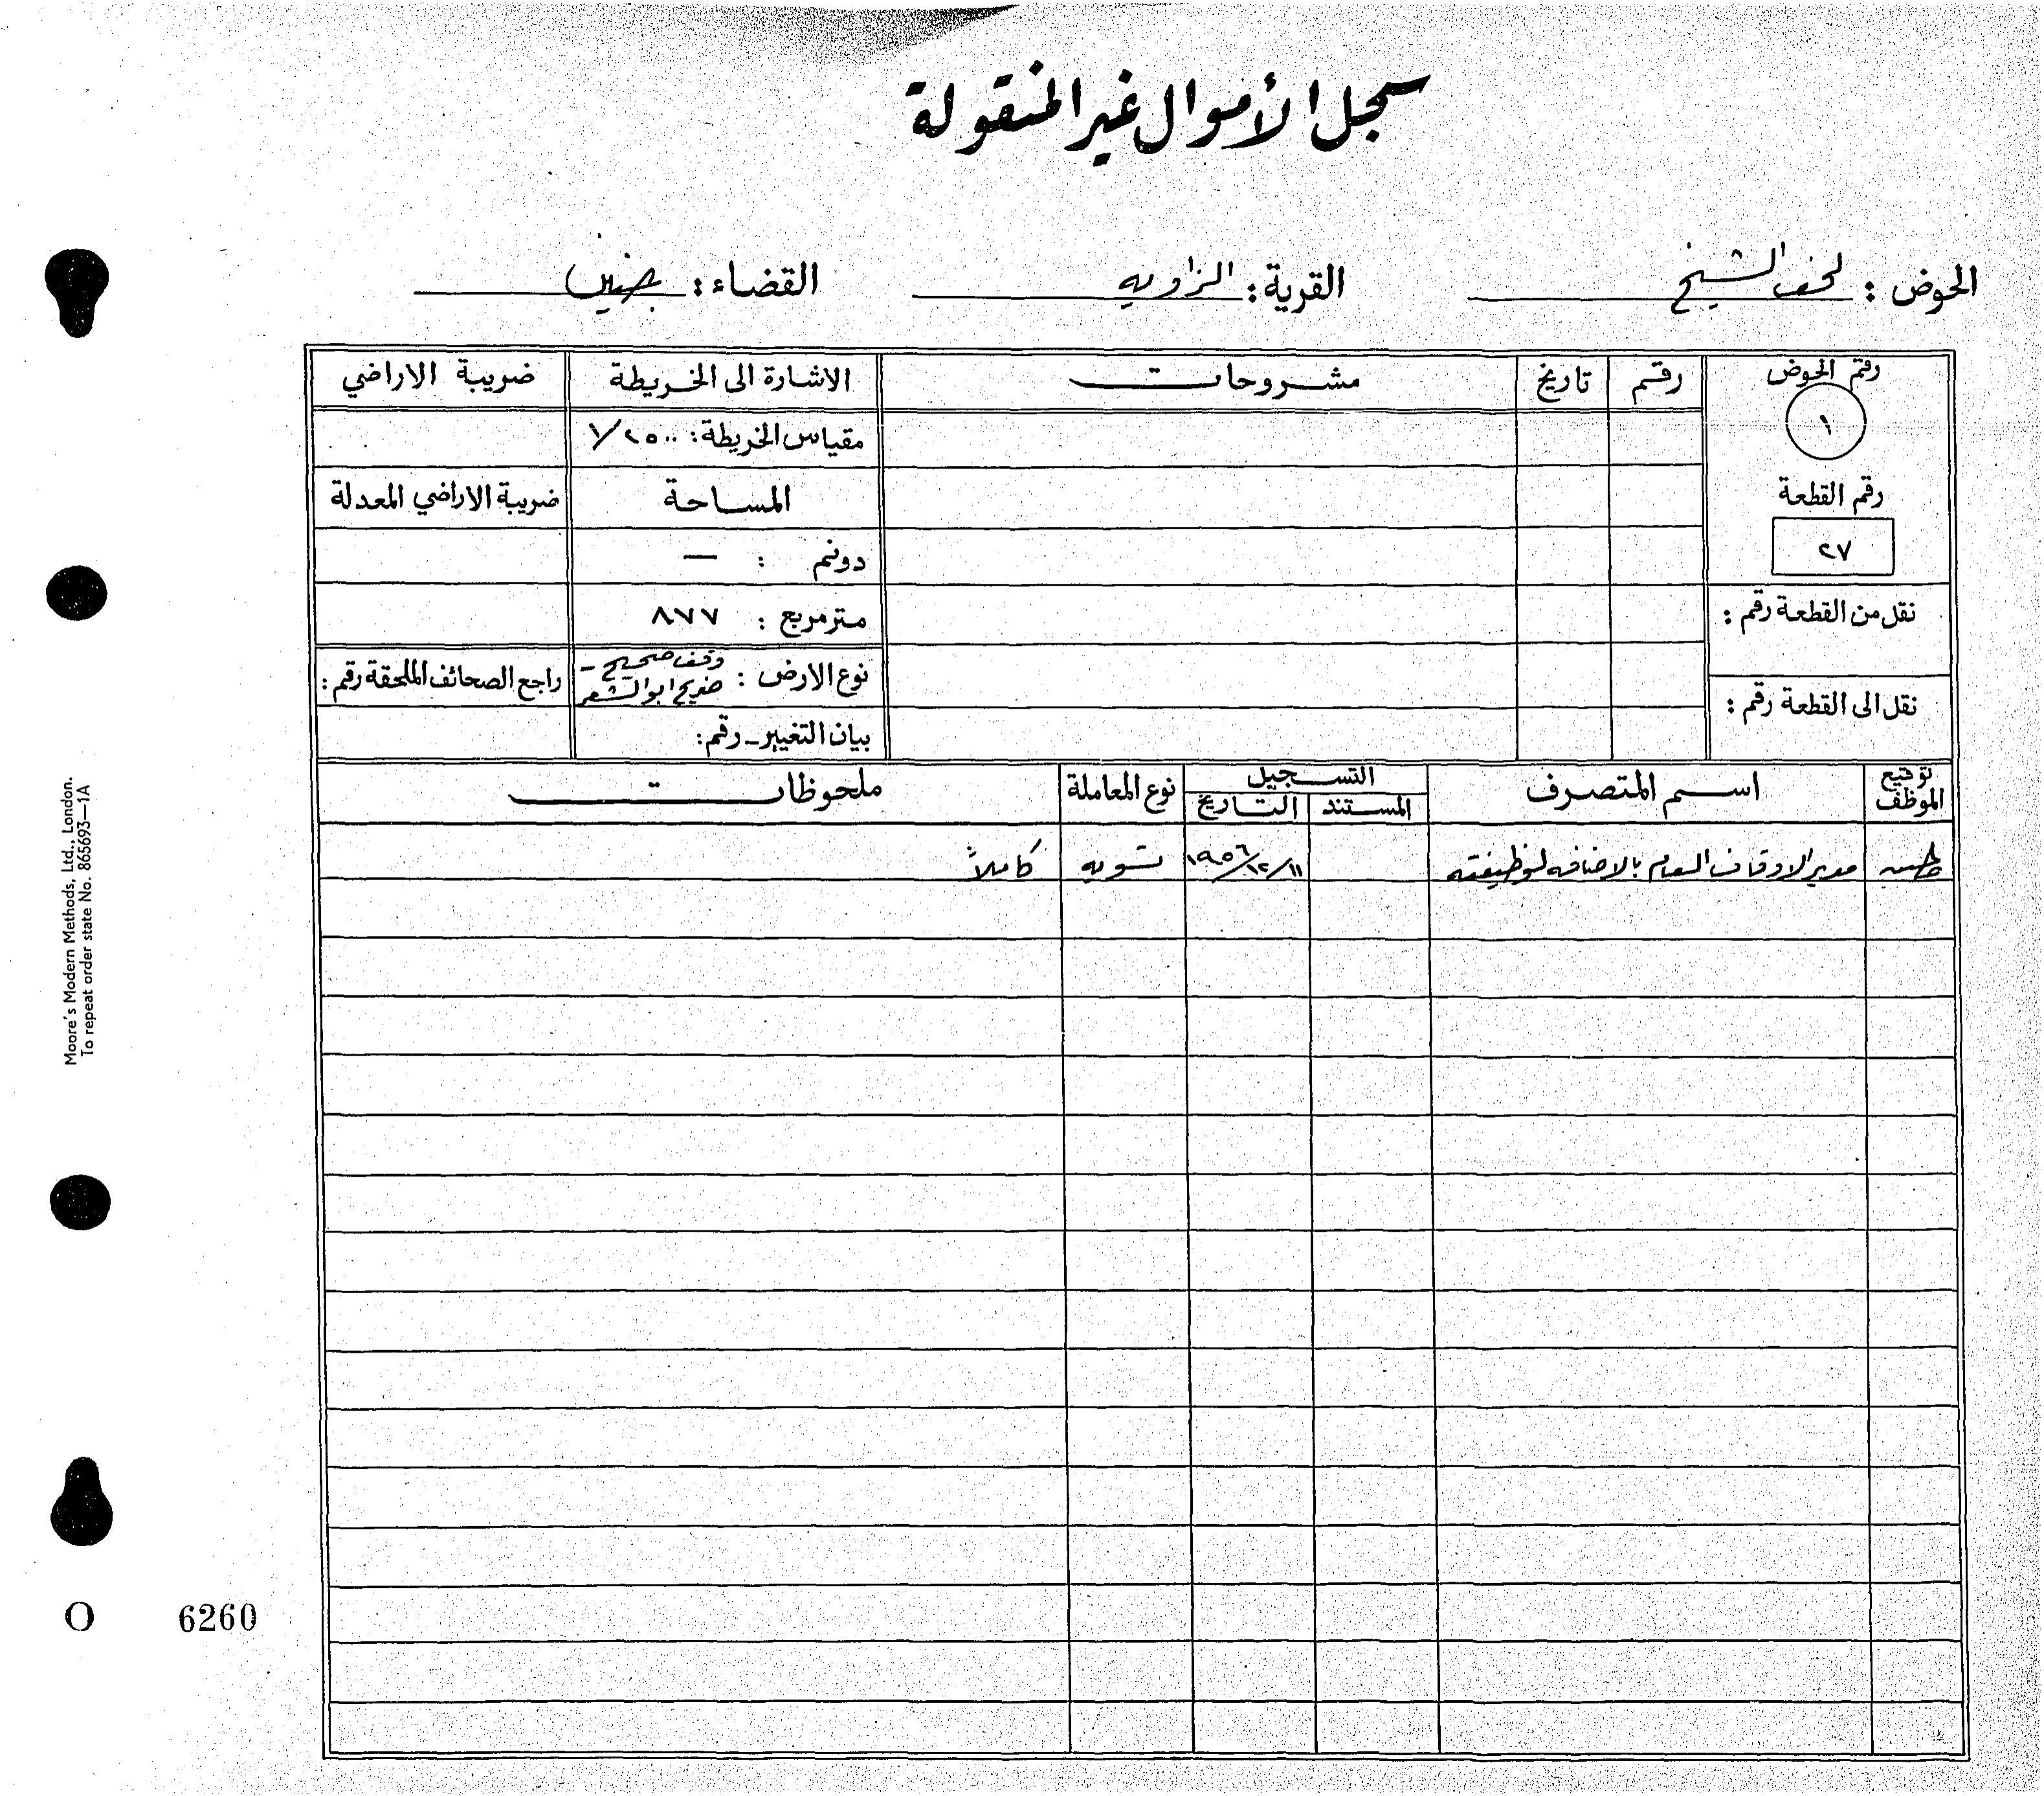 سجل الأموال غير المنقولة
الحوض : لحف الشيخ القرية : الزاويه القضاء : جنين
رقم الحوض رقم تاريخ مشروحات الاشارة الى الخريطة ضريبة الاراضي
١ مقياس الخريطة : ١/٢٥٠٠
رقم القطعة المساحة ضريبة الاراضي المعدلة
٢٧ دونم : —
نقل من القطعة رقم : متر مربع : ٨٧٧
نوع الارض : وقف صحيح - راجع الصحائف الملحقة رقم :
ضريح ابو الشعر
نقل الى القطعة رقم : بيان التغيير - رقم :
توقيع الموظف اسم المتصرف التسجيل نوع المعاملة ملحوظات
المستند التاريخ
مدير الاوقاف العام بالاضافه لوظيفته ١١/١٢/١٩٥٦ تسويه كاملاً
Moore's Modern Methods, Ltd., London.
To repeat order state No. 865693—1A
O 6260